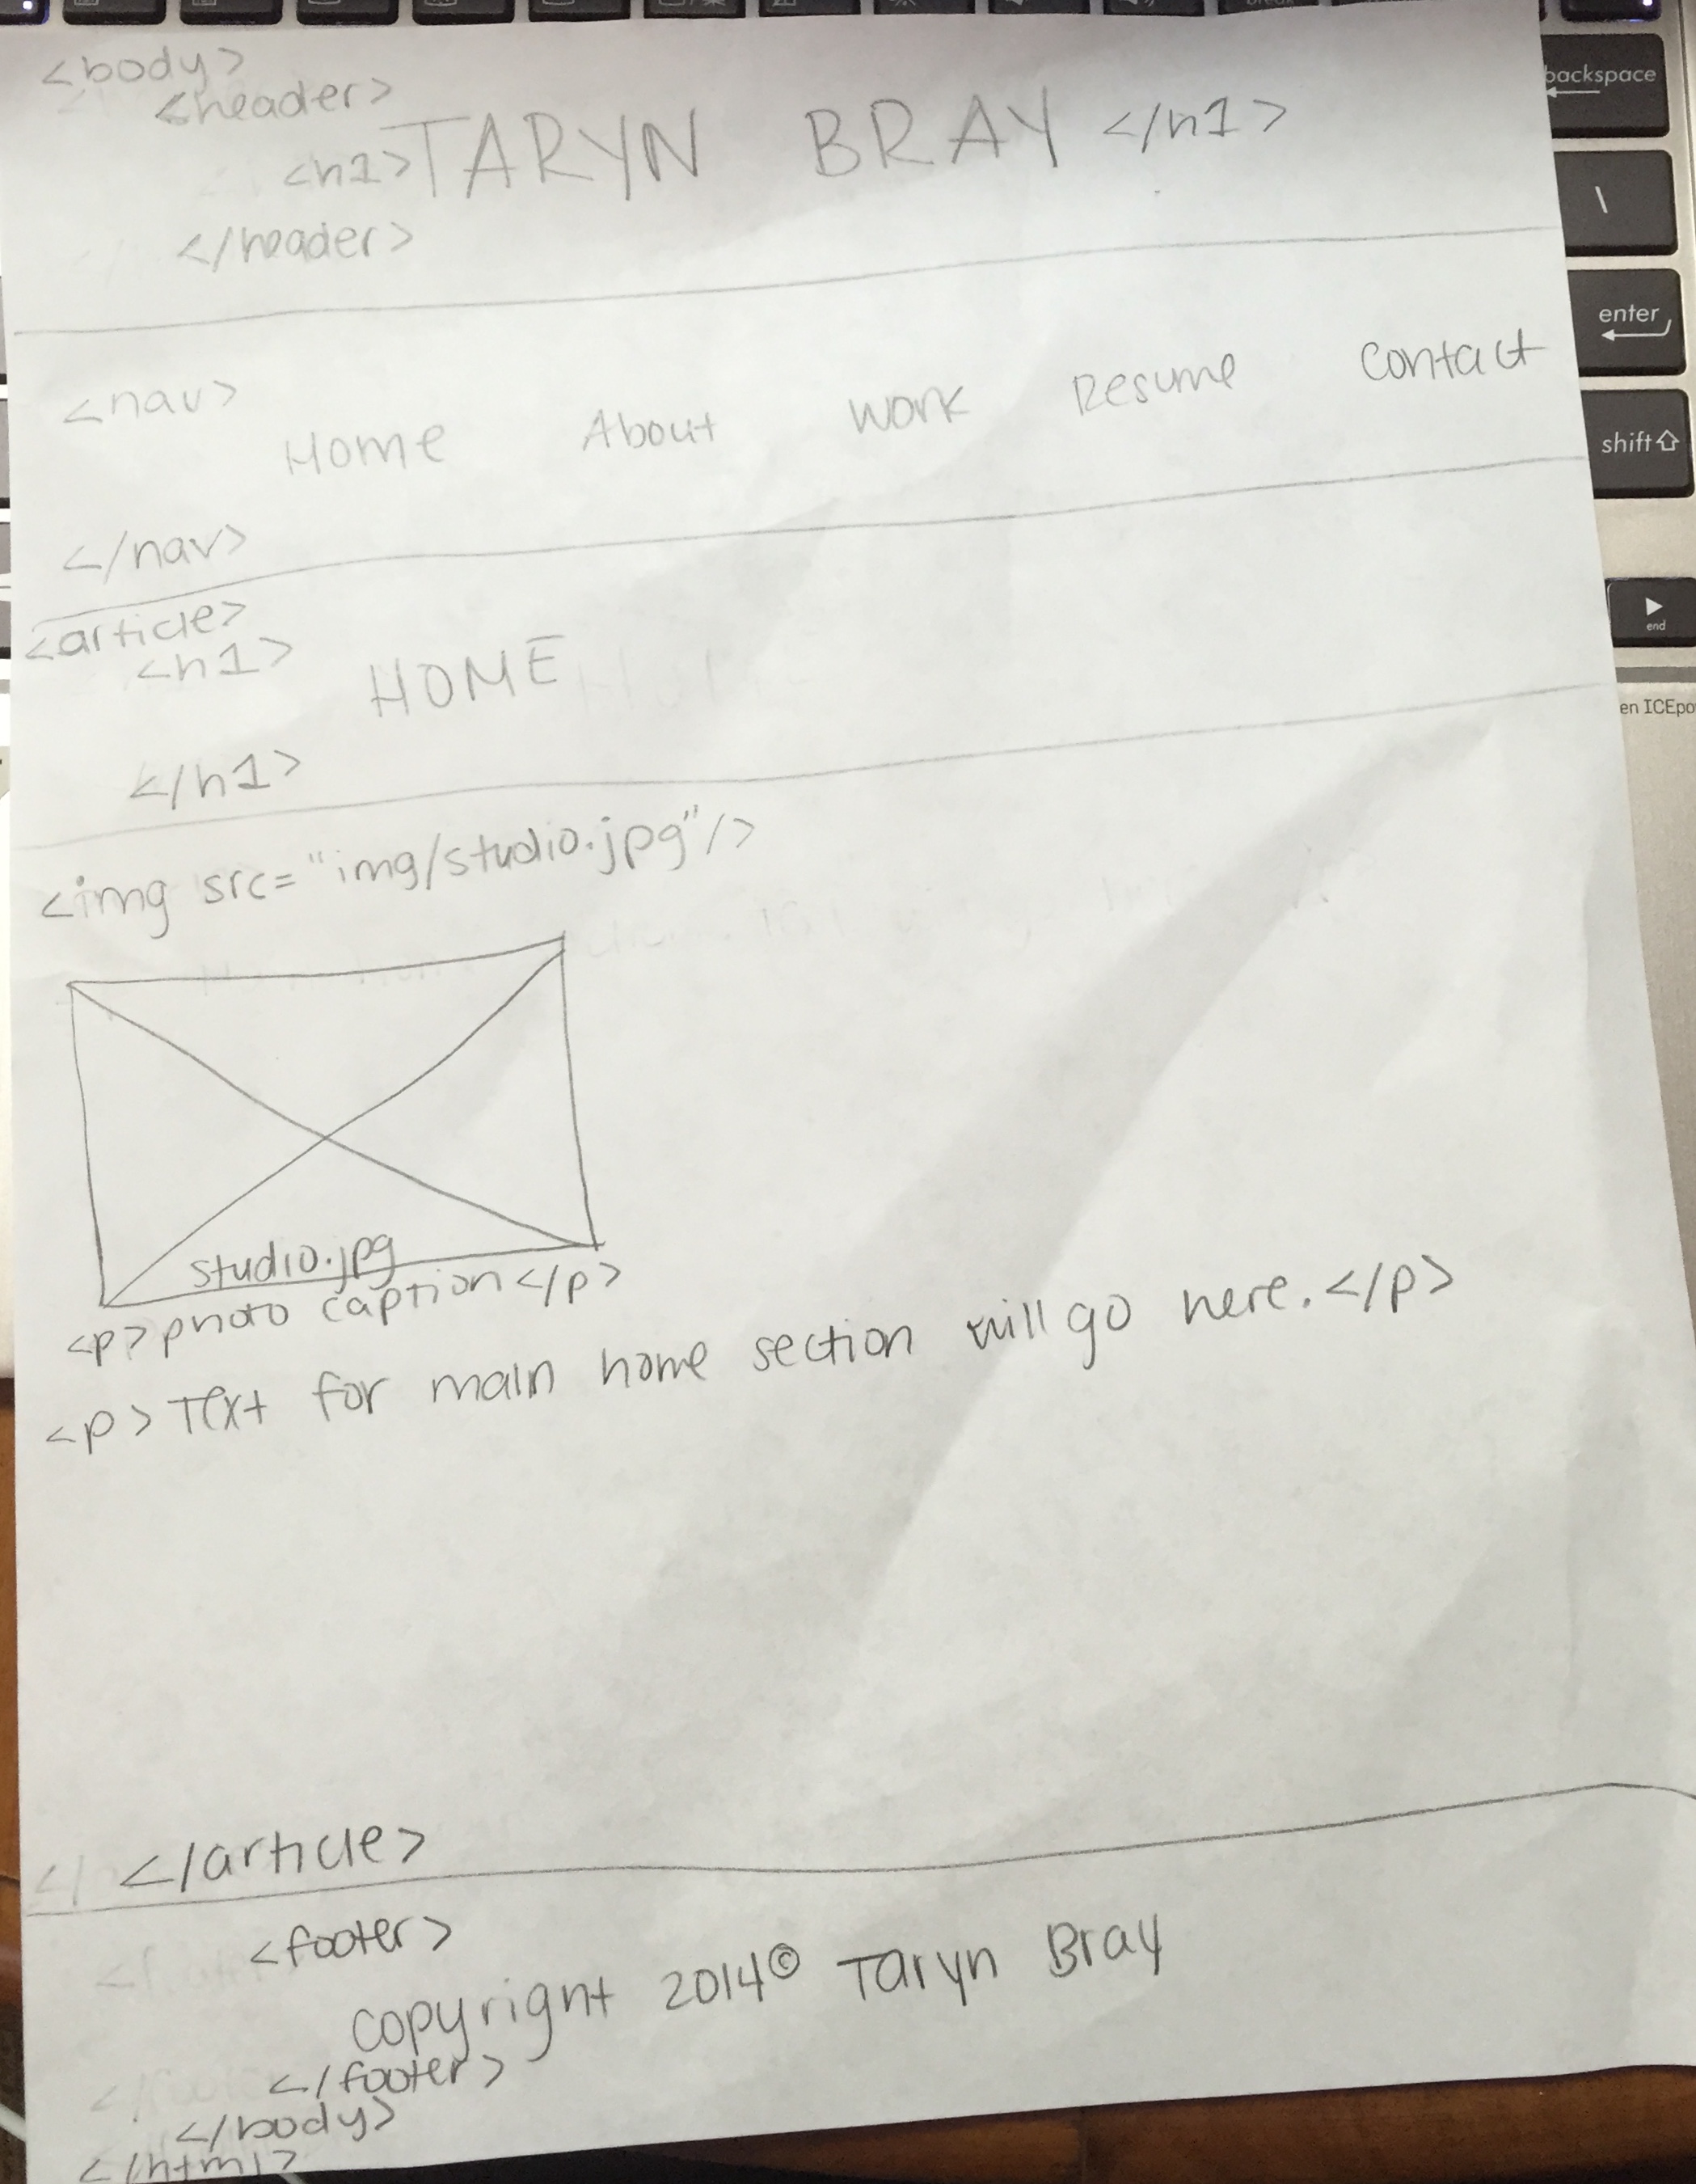 <body>
<header>
<h1>TARYN BRAY </h1>
</header>
<nav>
Home About Work Resume Contact
</nav>
<article>
<h1>
HOME
</h1>
<img src="img/studio.jpg"/>
studio.jpg
<p>photo caption</p>
<p>Text for main home section will go here.</p>
</article>
<footer>
Copyright 2014© Taryn Bray
</footer>
</body>
</html>
backspace
\
enter
shift
end
en ICEpo